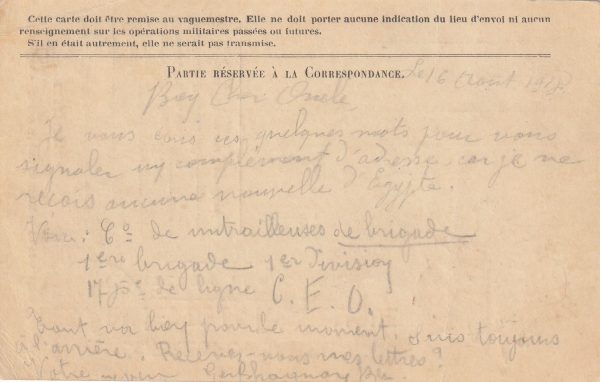 Cette carte doit être remise au vaguemestre. Elle ne doit porter aucune indication du lieu d'envoi ni aucun
renseignement sur les opérations militaires passées ou futures.
S'il en était autrement, elle ne serait pas transmise.
PARTIE RÉSERVÉE À LA CORRESPONDANCE.
Le 16 Août
Bey Cher Oncle,
Je vous cris ces quelques mots pour vous
signaler un complément d'adresse, car je ne
reçois aucune nouvelle d'Egypte.
Voici : Cie de mitrailleuses de brigade
1ère brigade 1er Division
17 de ligne C. E. O.
Tout va bien pour le moment. suis toujours
à l'arrière. Recevez-vous mes lettres?
Votre neveu